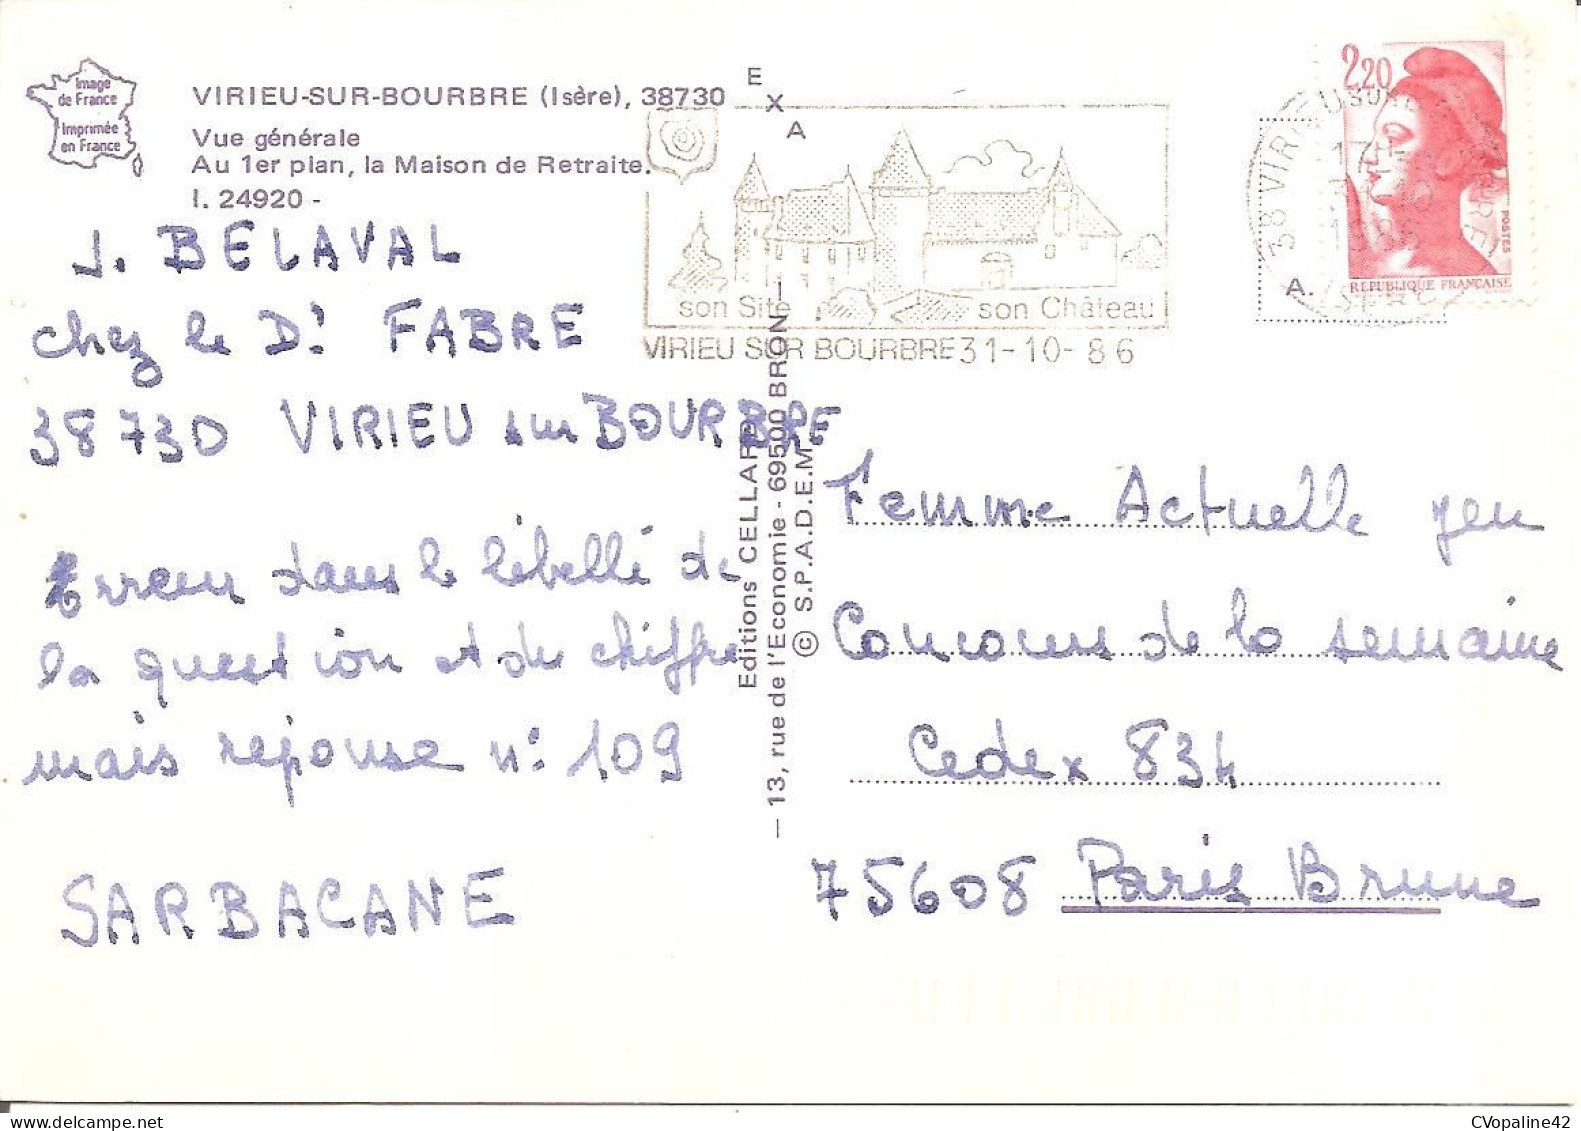 Image
de France
Imprimée
en France
VIRIEU-SUR-BOURBRE (Isère), 38730
Vue générale
Au 1er plan, la Maison de Retraite.
I. 24920 -
J. BELAVAL
chez le Dr FABRE
38730 VIRIEU sur BOURBRE
Erreur dans le libellé de
la question et du chiffre
mais réponse n° 109
SARBACANE
EXA
son Site son Château
VIRIEU SUR BOURBRE 31-10-86
Editions CELLARD
— 13, rue de l'Economie - 69500 BRON —
© S.P.A.D.E.M.
2,20
POSTES
REPUBLIQUE FRANÇAISE
38 VIRIEU SUR BOURBRE
17H
1986
ISERE
A.
Femme Actuelle jeu
Concours de la semaine
Cedex 834
75608 Paris Brune
CVopaline42